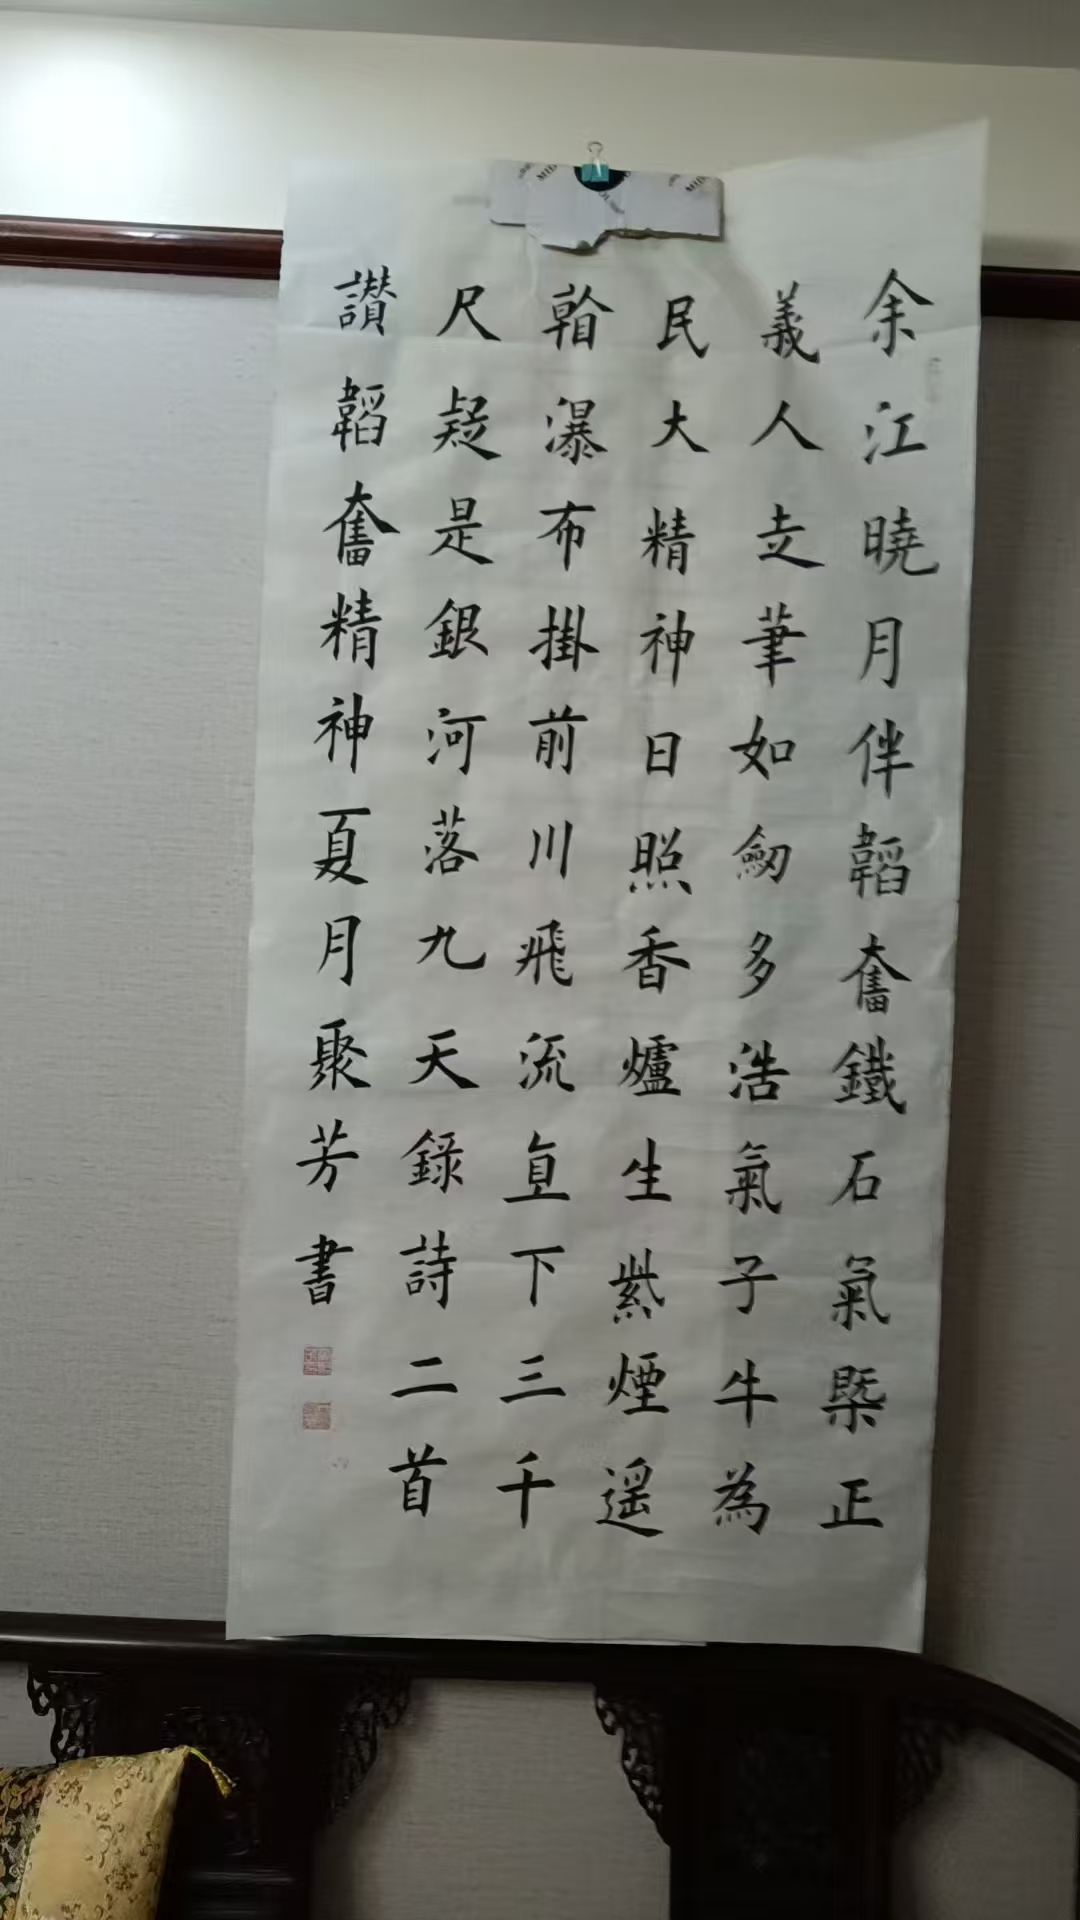 余江曉月伴韜奮鐵石氣槩正
義人㐀筆如劒多浩氣子牛為
民大精神日照香爐生紫煙遥
瀑布掛前川飛流直下三千
尺疑是銀河落九天錄詩二首
讃韜奮精神夏月聚芳書